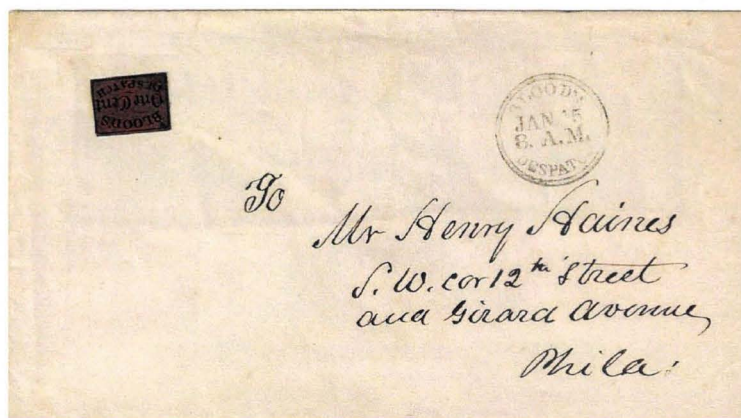 BLOOD'S
One Cent
DESPATCH
BLOOD'S
JAN 15
8. A.M.
DESPATCH
To
Mr Henry Haines
S. W. cor 12th Street
and Girard Avenue,
Phila: